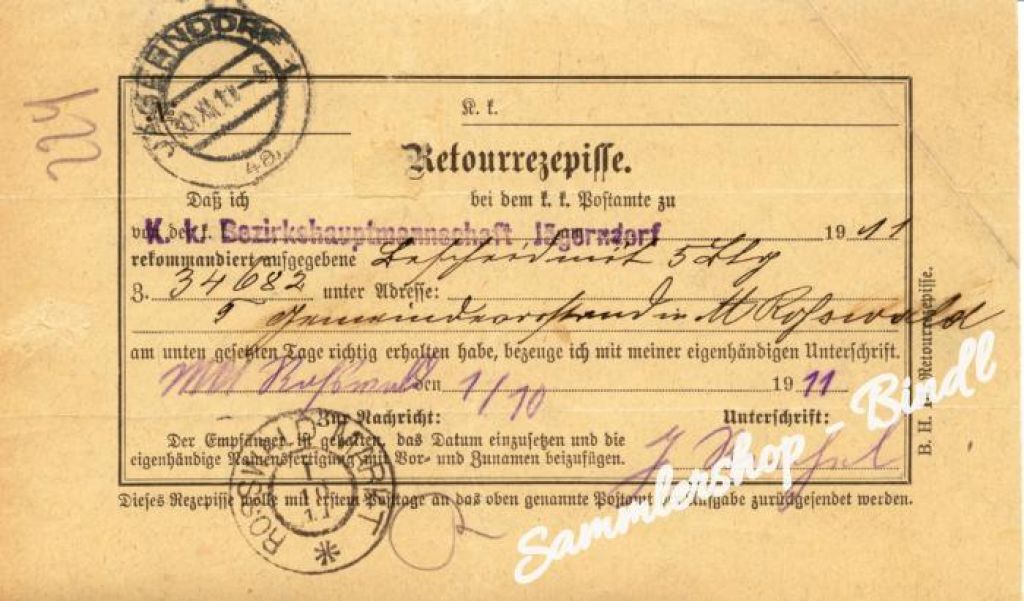 JÄGERNDORF 1
4a
224
N
K. k.
Retourrezepisse.
Daß ich bei dem k. k. Postamte zu
von der k. k. am 1911
K. k. Bezirkshauptmannschaft Jägerndorf
rekommandiert aufgegebene Bescheid mit 5 Blg
Z. 34682 unter Adresse:
Gemeindevorstand in M Roßwald
am unten gesetzten Tage richtig erhalten habe, bezeuge ich mit meiner eigenhändigen Unterschrift.
Roßwald den 1/10 1911
Zur Nachricht: Unterschrift:
Der Empfänger ist gehalten, das Datum einzusetzen und die
eigenhändige Namensfertigung mit Vor- und Zunamen beizufügen.
J
Dieses Rezepisse wolle mit erstem Posttage an das oben genannte Postamt der Aufgabe zurückgesendet werden.
ROSSWALD MARKT
B. H. Retourrezepisse.
Sammlershop - Bindl